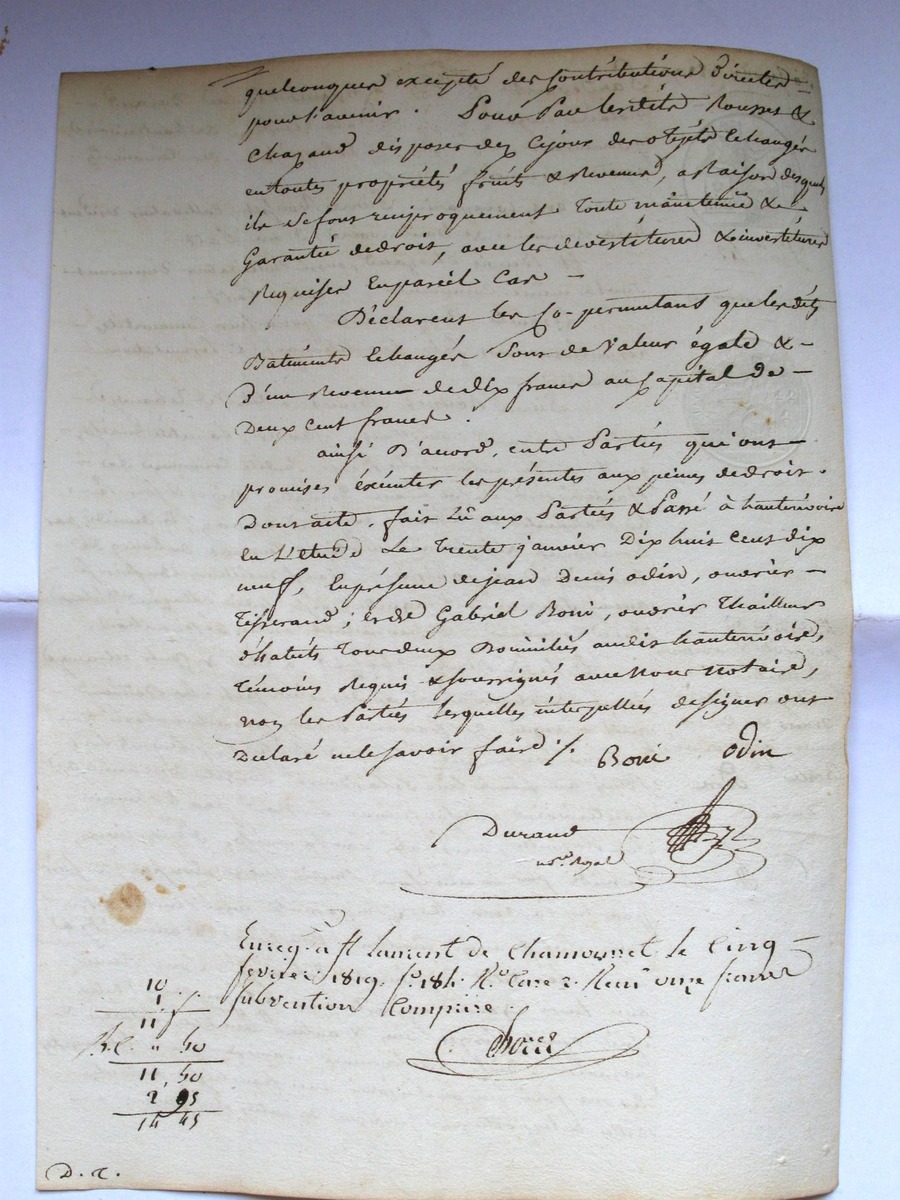 quelconques excepté des Contributions Directes
pour l'avenir. Pour par lesdits Rousses &
Chazand disposer dez Cejour des objets Echangés
en toutes propriétés fruits & Revenus, a Raison desquels
ils se font reciproquement Toute maintenue &
Garantie de droit, avec les devestitures & investitures
Requises En pareil Cas —
Déclarent les Co-permutans que lesdits
Batiments Echangés Sont de Valeur égale & -
D'un Revenu de dix francs au Capital de —
Deux Cent francs.
ainsi D'acord, entre Parties qui ont —
promises éxécuter les présentes aux peines de droit.
Dont acte, fait Lû aux Parties & Passé à hauterivoire
En L'etude Le Trente janvier Dix huit Cent dix
neuf, En présence de jean Denis odin, ouvrier —
Tisserand; et de Gabriel Boni, ouvrier Thailleur
d'habits Tous deux Domiciliés audit hauterivoire,
Témoins Requis & soussignés avec Nous Notaire,
non les Parties lesquelles interpellées de signer ont
Declaré ne le savoir faire ./.
Boni odin
Durand
not.re Royal
Enreg. à St Laurent de Chamousset le Cinq —
fevrier 1819. f.o 184 R.o Case 2. Recu onze francs
Subvention Comprise.
10
1
11
50
11, 50
2 95
14 45
D. a.